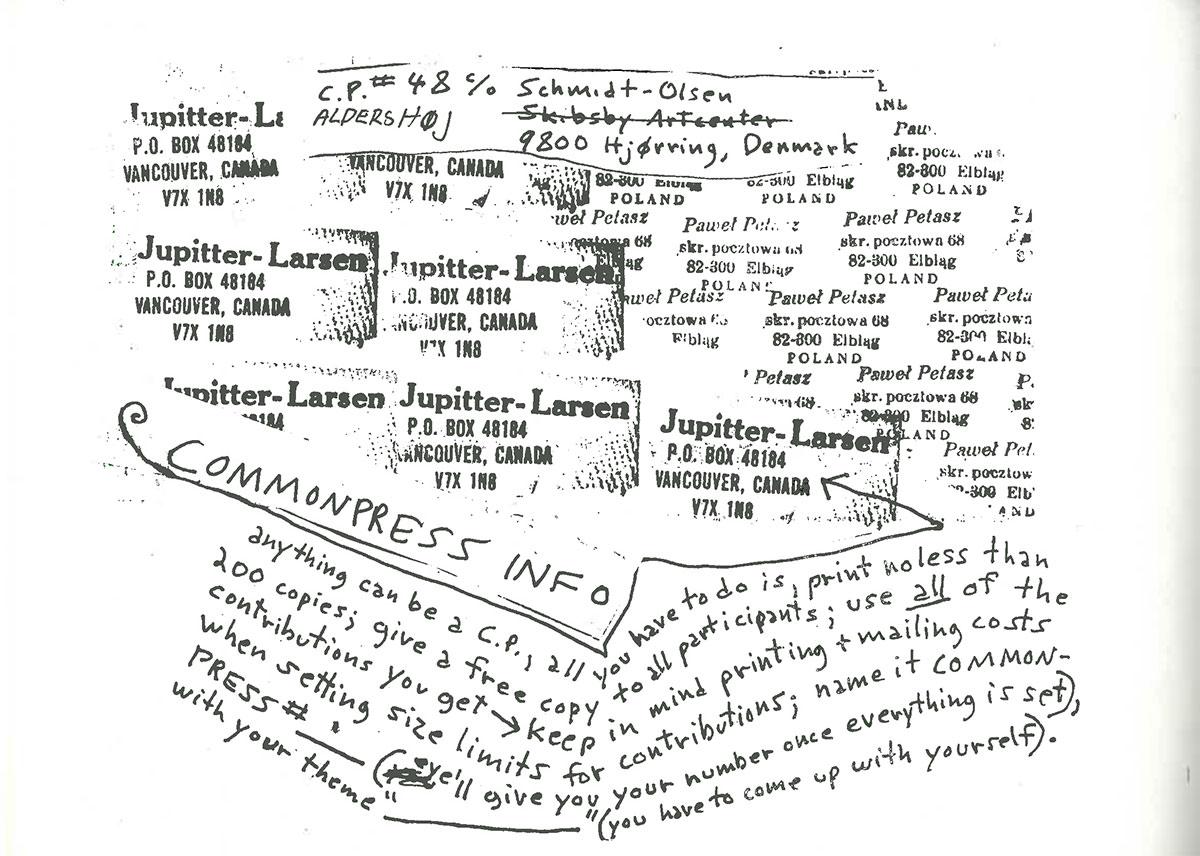 C.P. # 48 c/o Schmidt-Olsen
ALDERSHØJ Skibsby Artcenter
9800 Hjørring, Denmark
Jupitter-La
P.O. BOX 48184
VANCOUVER, CANADA
V7X 1N8
VANCOUVER, CANADA
V7X 1N8
82-300 Elbląg
POLAND
82-300 Elbląg
POLAND
Paw
skr. pocz
82-300 Elbląg
POLAND
Jupitter-Larsen
P.O. BOX 48184
VANCOUVER, CANADA
V7X 1N8
Jupitter-Larsen
P.O. BOX 48184
VANCOUVER, CANADA
V7X 1N8
weł Petasz
pocztowa 68
Paweł Petasz
skr. pocztowa 68
82-300 Elbląg
POLAND
Paweł Petasz
skr. pocztowa 68
82-300 Elbląg
POLAND
aweł Petasz
ocztowa
Elbląg
Paweł Petasz
skr. pocztowa 68
82-300 Elbląg
POLAND
Paweł Peta
skr. pocztowa
82-300 Elbl
POLAND
Petasz
68
Paweł Petasz
skr. pocztowa 68
82-300 Elbląg
POLAND
Paweł Pet
skr. pocztow
82-300 Elb
AND
Jupitter-Larsen
Jupitter-Larsen
P.O. BOX 48184
VANCOUVER, CANADA
V7X 1N8
Jupitter-Larsen
P.O. BOX 48184
VANCOUVER, CANADA
V7X 1N8
COMMONPRESS INFO
anything can be a C.P.; all you have to do is, print no less than
200 copies; give a free copy to all participants; use all of the
contributions you get → keep in mind printing + mailing costs
when setting size limits for contributions; name it COMMON-
PRESS # . (eye'll give you your number once everything is set),
with your theme " " (you have to come up with yourself).